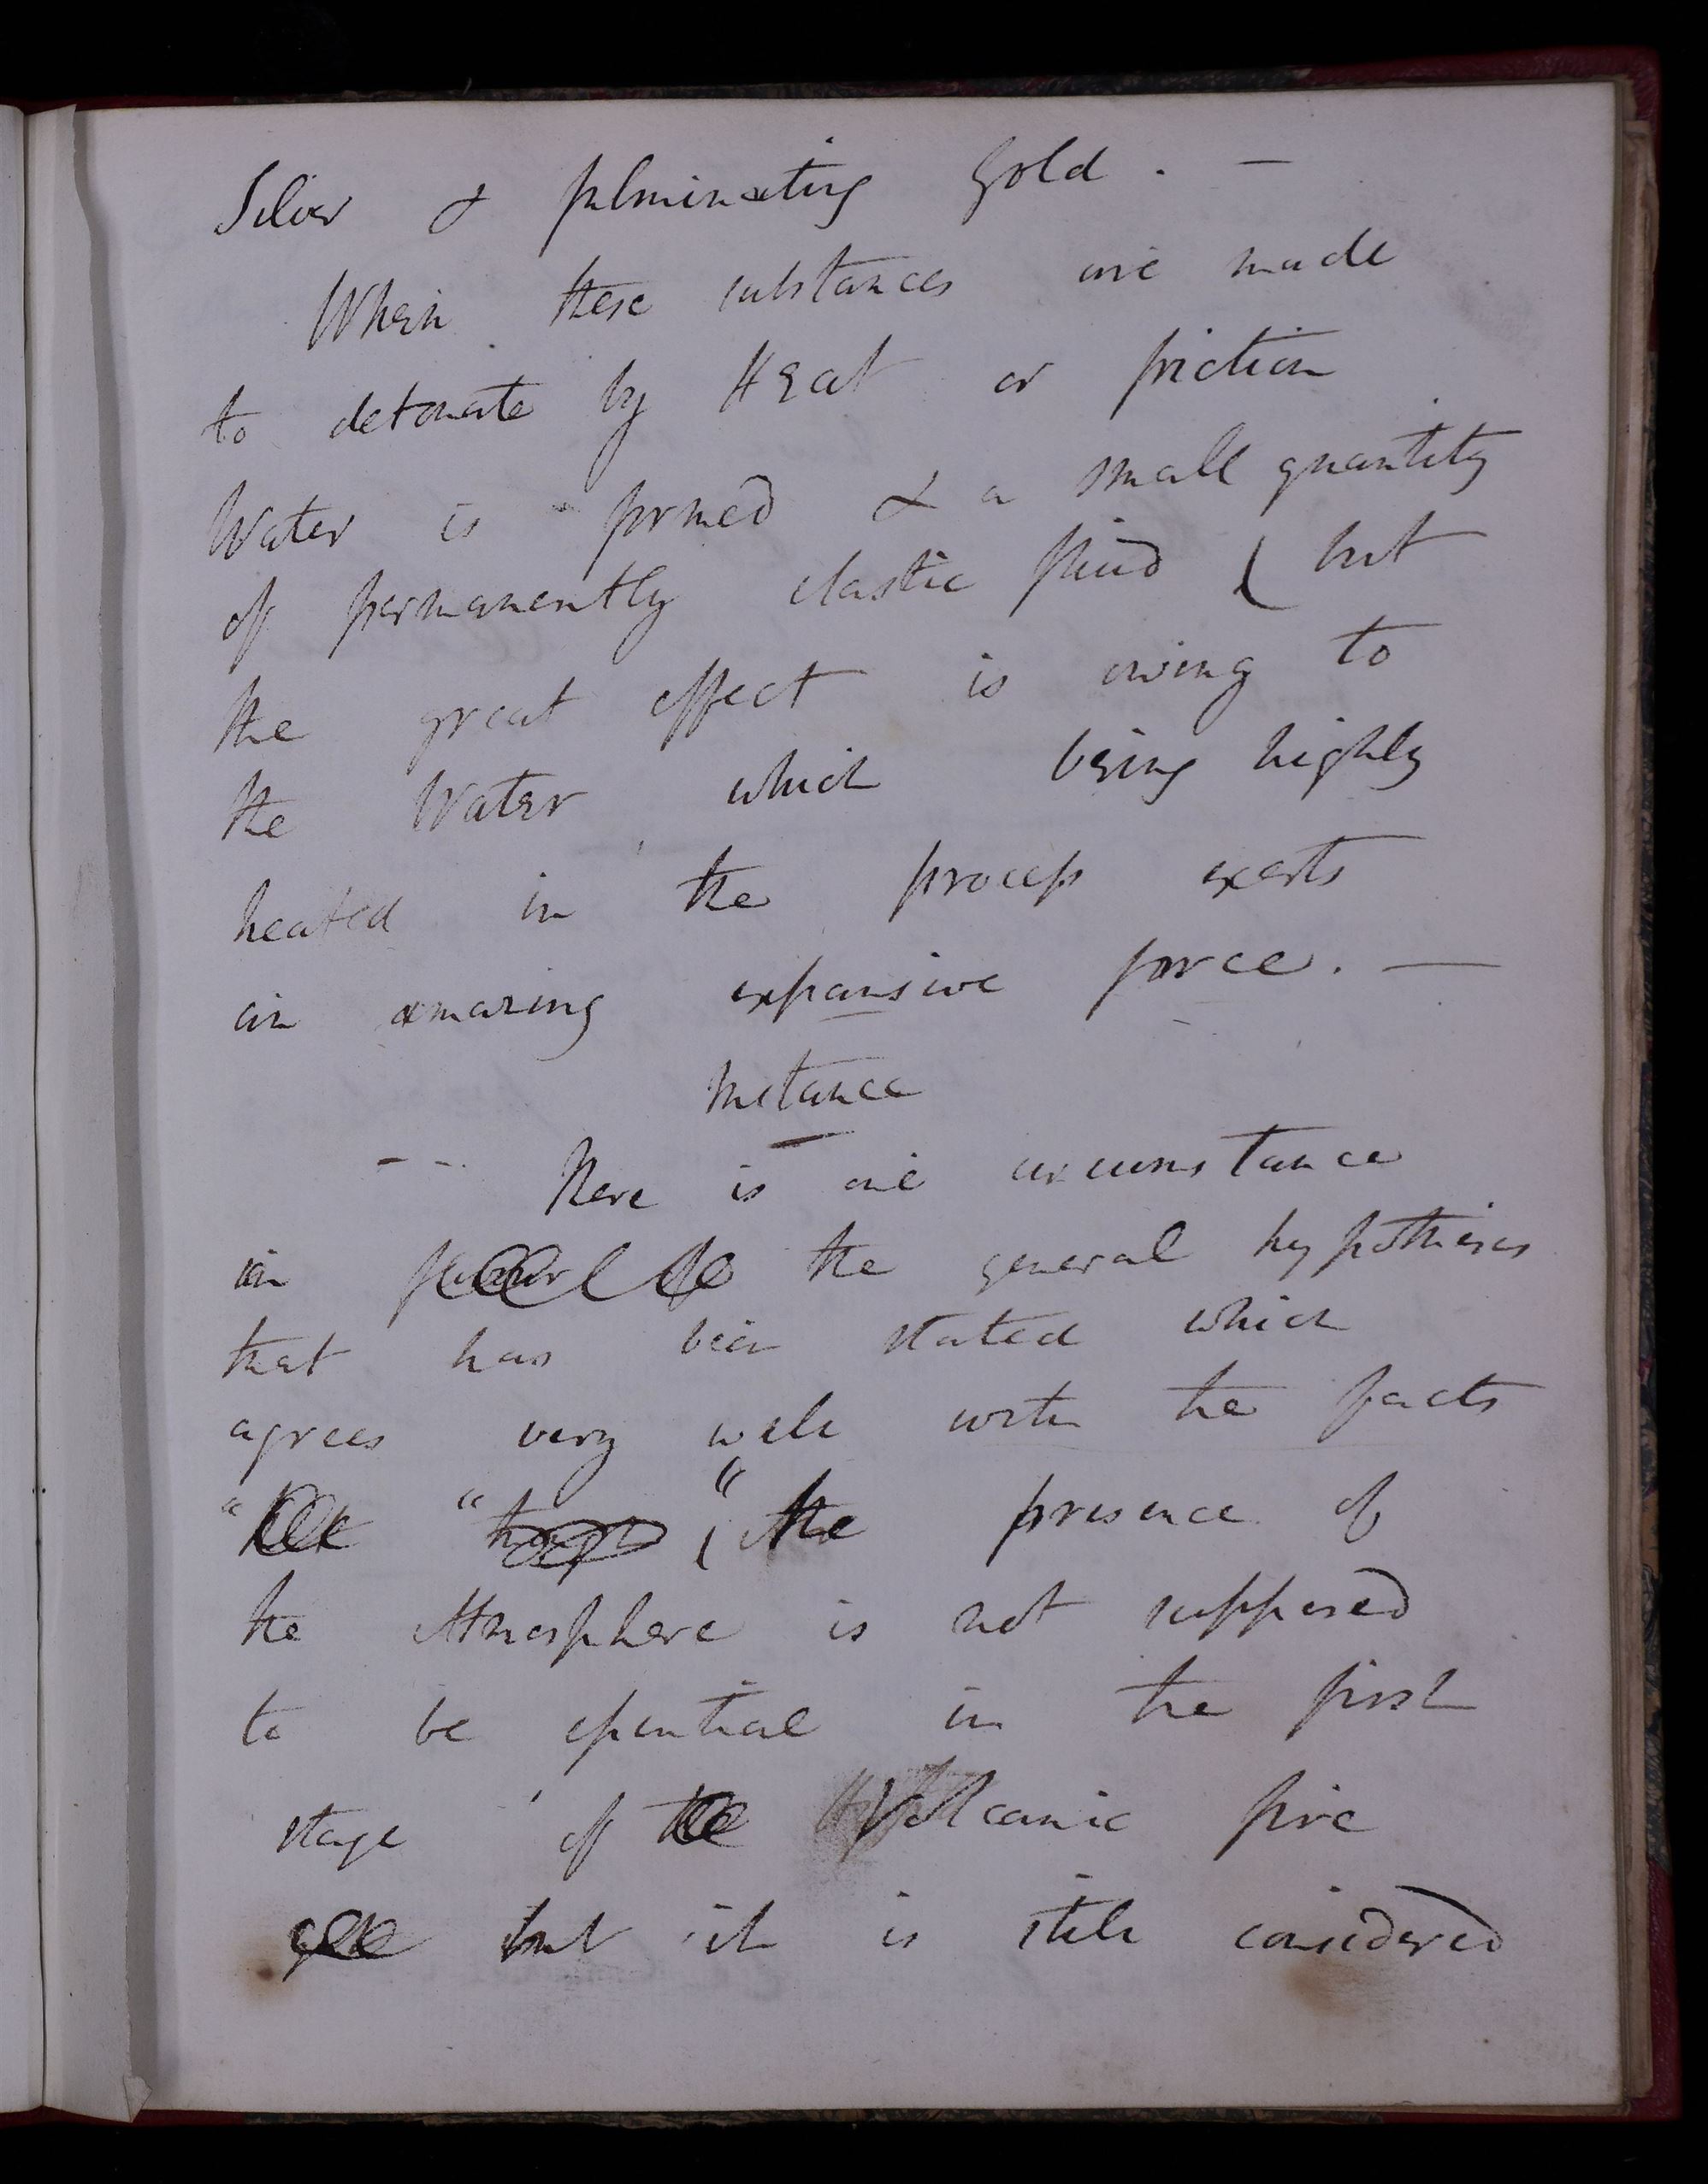 Silver & fulminating Gold. —
When these substances are made
to detonate by Heat or friction
Water is formed & a small quantity
of permanently elastic fluid ( but
the great effect is owing to
the Water which being highly
heated in the process exerts
an amazing expansive force. —
Instance
There is one circumstance
in favour of the general hypothesis
that has been stated which
agrees very well with the facts
" " ( " the presence of
the Atmosphere is not supposed
to be essential in the first
stage of the Volcanic fire
but it is still considered